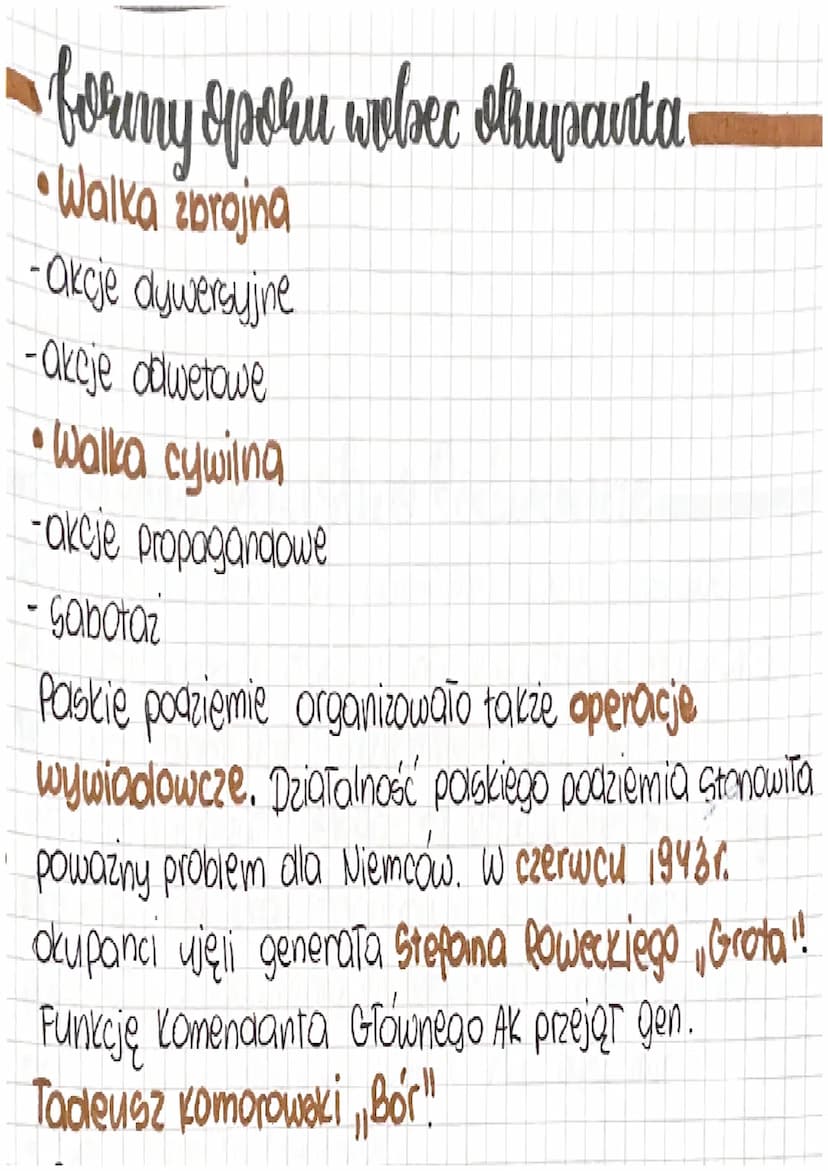 formy oporu wobec okupanta
• Walka zbrojna
- akcje dywersyjne
- akcje odwetowe
• Walka cywilna
- akcje propagandowe
- sabotaż
Polskie podziemie organizowało także operacje
wywiadowcze. Działalność polskiego podziemia stanowiła
poważny problem dla Niemców. W czerwcu 1943r.
okupanci ujęli generała Stefana Roweckiego „Grota".
Funkcję Komendanta Głównego AK przejął gen.
Tadeusz Komorowski „Bór"